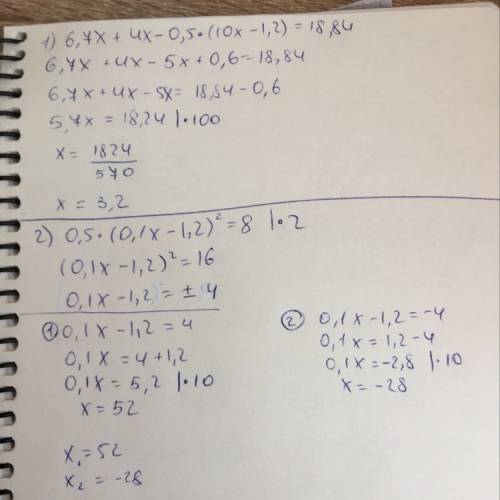 1) 6,7x + 4x - 0,5 • (10x - 1,2) = 18,84
6,7x + 4x - 5x + 0,6 = 18,84
6,7x + 4x - 5x = 18,84 - 0,6
5,7x = 18,24 | • 100
x = 1824/570
x = 3,2
2) 0,5 • (0,1x - 1,2)² = 8 | • 2
(0,1x - 1,2)² = 16
0,1x - 1,2 = ± 4
① 0,1x - 1,2 = 4
0,1x = 4 + 1,2
0,1x = 5,2 | • 10
x = 52
② 0,1x - 1,2 = -4
0,1x = 1,2 - 4
0,1x = -2,8 | • 10
x = -28
x₁ = 52
x₂ = -28